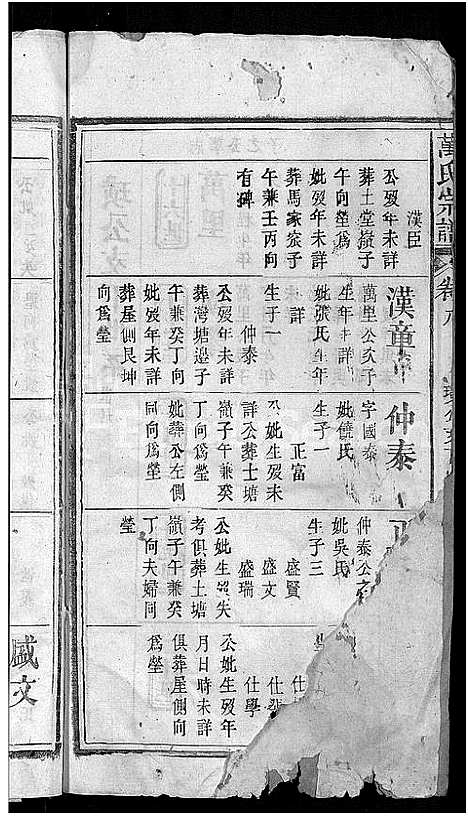 萬氏宗譜
卷八
漢臣
公歿年未詳
葬土堂嶺子
午向塋爲
妣歿年未詳
葬馬家嶺子
午兼壬丙向
有碑
漢章
萬里公次子
生年未詳
妣張氏生年
未詳
生子一
仲泰
公歿年未詳
葬灣塘邊子
午兼癸丁向
妣歿年未詳
葬屋側艮坤
向爲塋
仲泰
字國泰
妣饒氏
生子一
正富
公妣生歿未
詳公葬土塘
嶺子午兼癸
丁向爲塋
妣葬公左側
同向爲塋
正
仲泰公
妣吳氏
生子三
盛賢
盛文
盛瑞
公妣生歿失
考俱葬土塘
嶺子午兼癸
丁向夫婦同
塋
仕
仕
仕學
公妣生歿年
月日時未詳
俱葬屋側向
爲塋
盛文